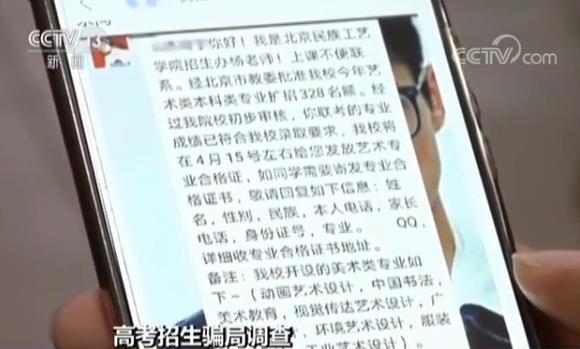 CCTV 13
新闻
CCTV.com
你好！我是北京民族工艺
学院招生办杨老师！上课不便联
系。经北京市教委批准我校今年艺
术类本科类专业扩招328名额。经
过我院校初步审核，你联考的专业
成绩已符合我校录取要求，我校将
在4月15号左右给您发放艺术专
业合格证，如同学需要寄发专业合
格证书，敬请回复如下信息：姓
名，性别，民族，本人电话，家长
电话，身份证号，专业。 QQ，
详细收专业合格证书地址。
备注：我校开设的美术类专业如
下-（动画艺术设计，中国书法，
美术教育，视觉传达艺术设计，广
设计，环境艺术设计，服装
工业艺术设计）。
高考招生骗局调查